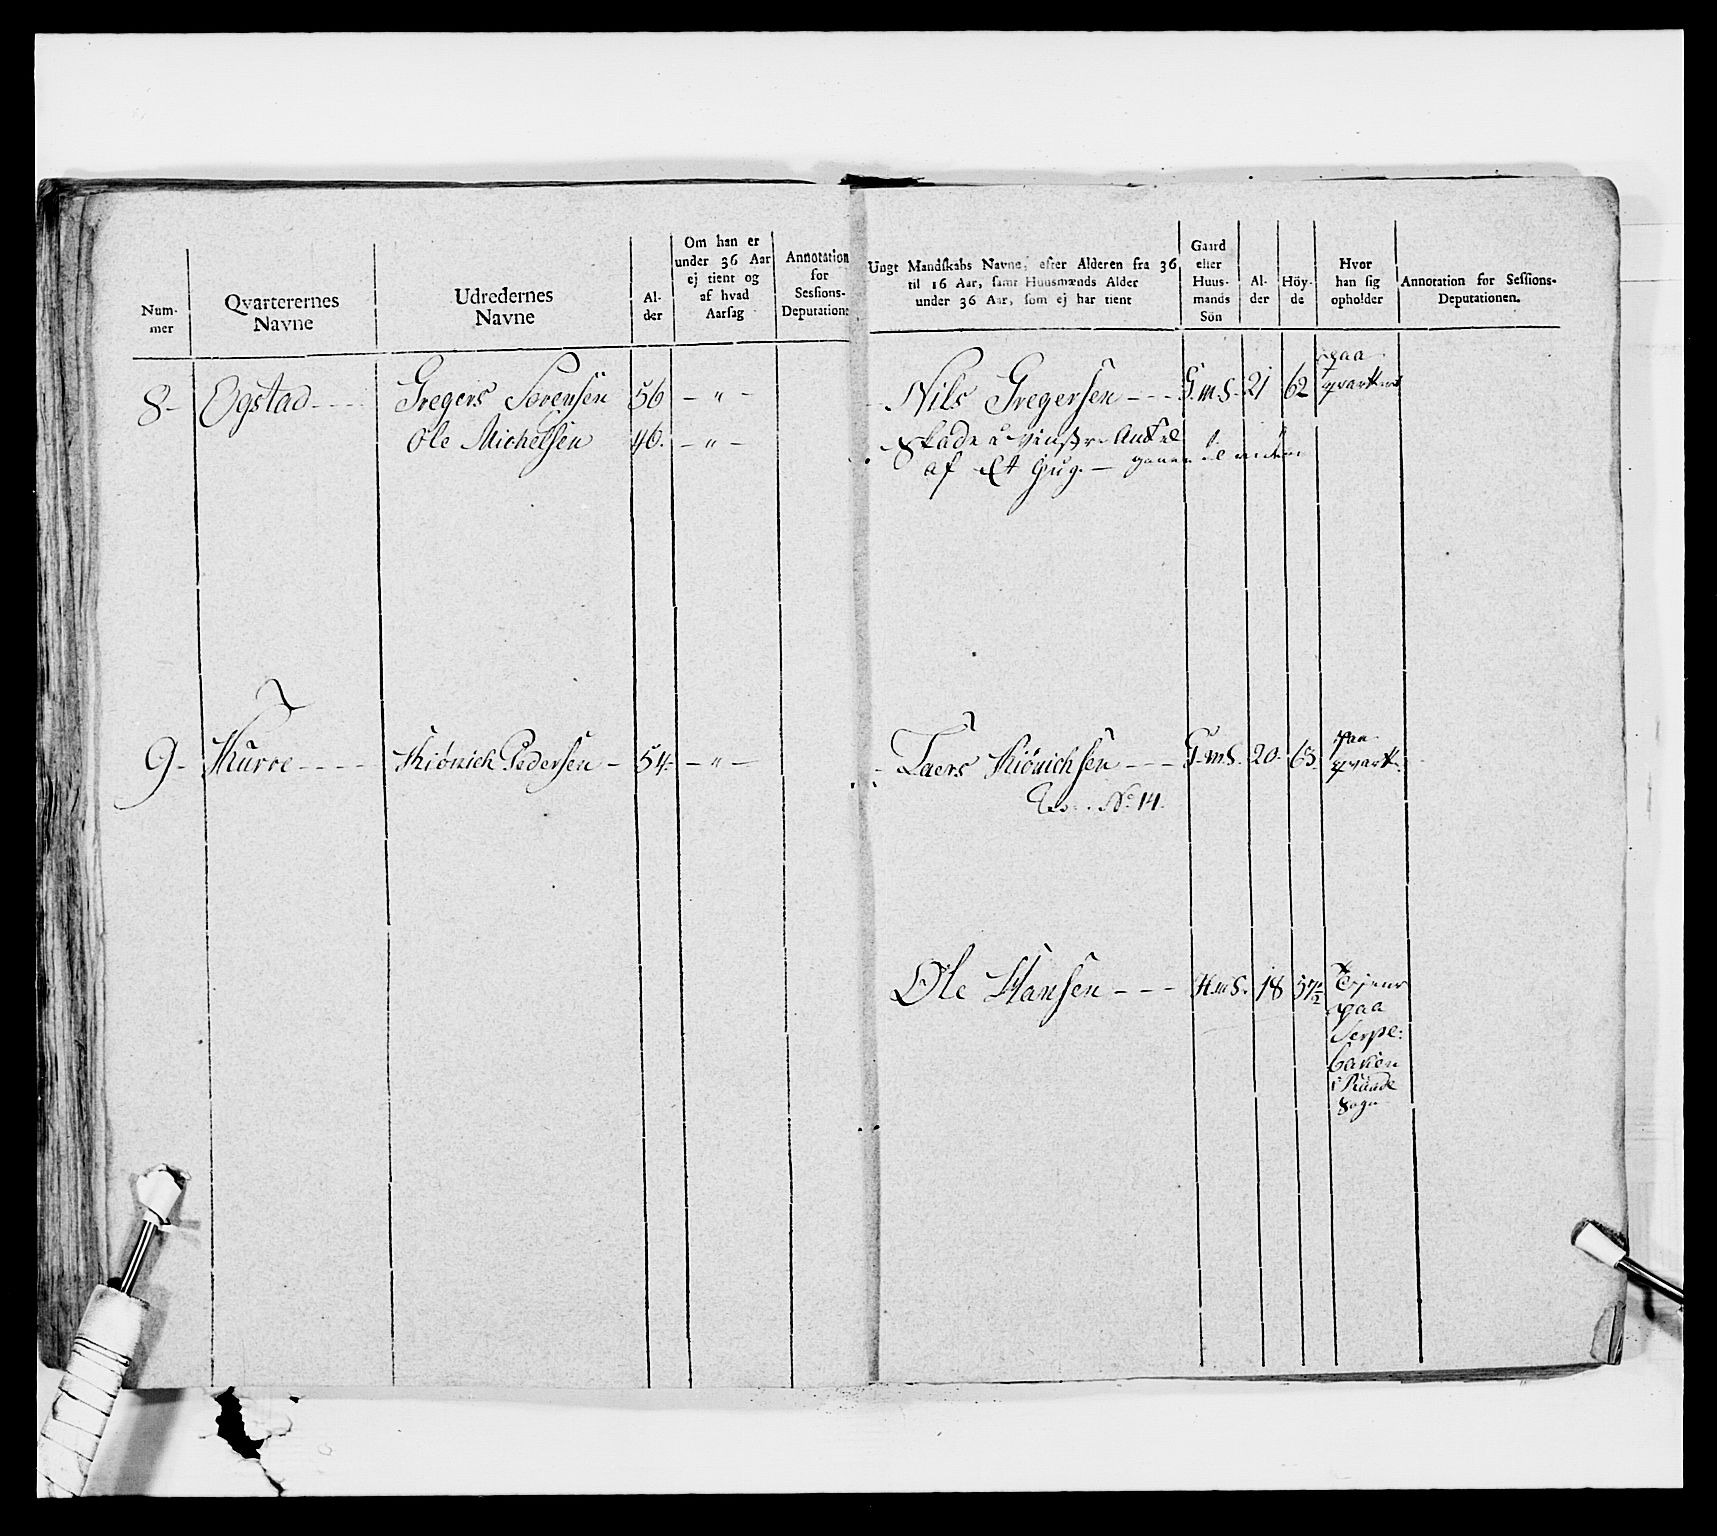 Num-
mer
Qvarterernes
Navne
Udredernes
Navne
Al-
der
Om han er
under 36 Aar
ej tient og
af hvad
Aarsag
Annotation
for
Sessions-
Deputation:
Ungt Mandskabs Navne, efter Alderen fra 36
til 16 Aar, samt Huusmænds Alder
under 36 Aar, som ej har tient
Gaard
eller
Huus-
mands
Sön
Al-
der
Höy-
de
Hvor
han sig
opholder
Annotation for Sessions-
Deputationen.
8- Ogstad---- Gregers Sørensen 56 - " - Nils Gregersen --- G.m.S. 21 62 paa
qvarteret
Ole Michelsen 46. - " -
Skade venstre Ankel
af Et Hug. —
9- Kurve---- Kiönich Pedersen - 54- - " - Taers Kiönichsen --- G.m.S. 20- 63 paa
qvart
No 14.
Ole Hansen --- H.m.S. 18 57½ Tjener
paa
Serpe:
bakken
i Raade
Sogn